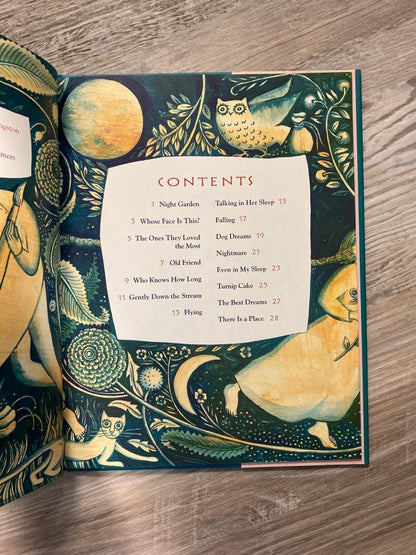 ngston
mers
CONTENTS
1 Night Garden
3 Whose Face Is This?
5 The Ones They Loved
the Most
7 Old Friend
9 Who Knows How Long
11 Gently Down the Stream
13 Flying
Talking in Her Sleep 15
Falling 17
Dog Dreams 19
Nightmare 21
Even in My Sleep 23
Turnip Cake 25
The Best Dreams 27
There Is a Place 28